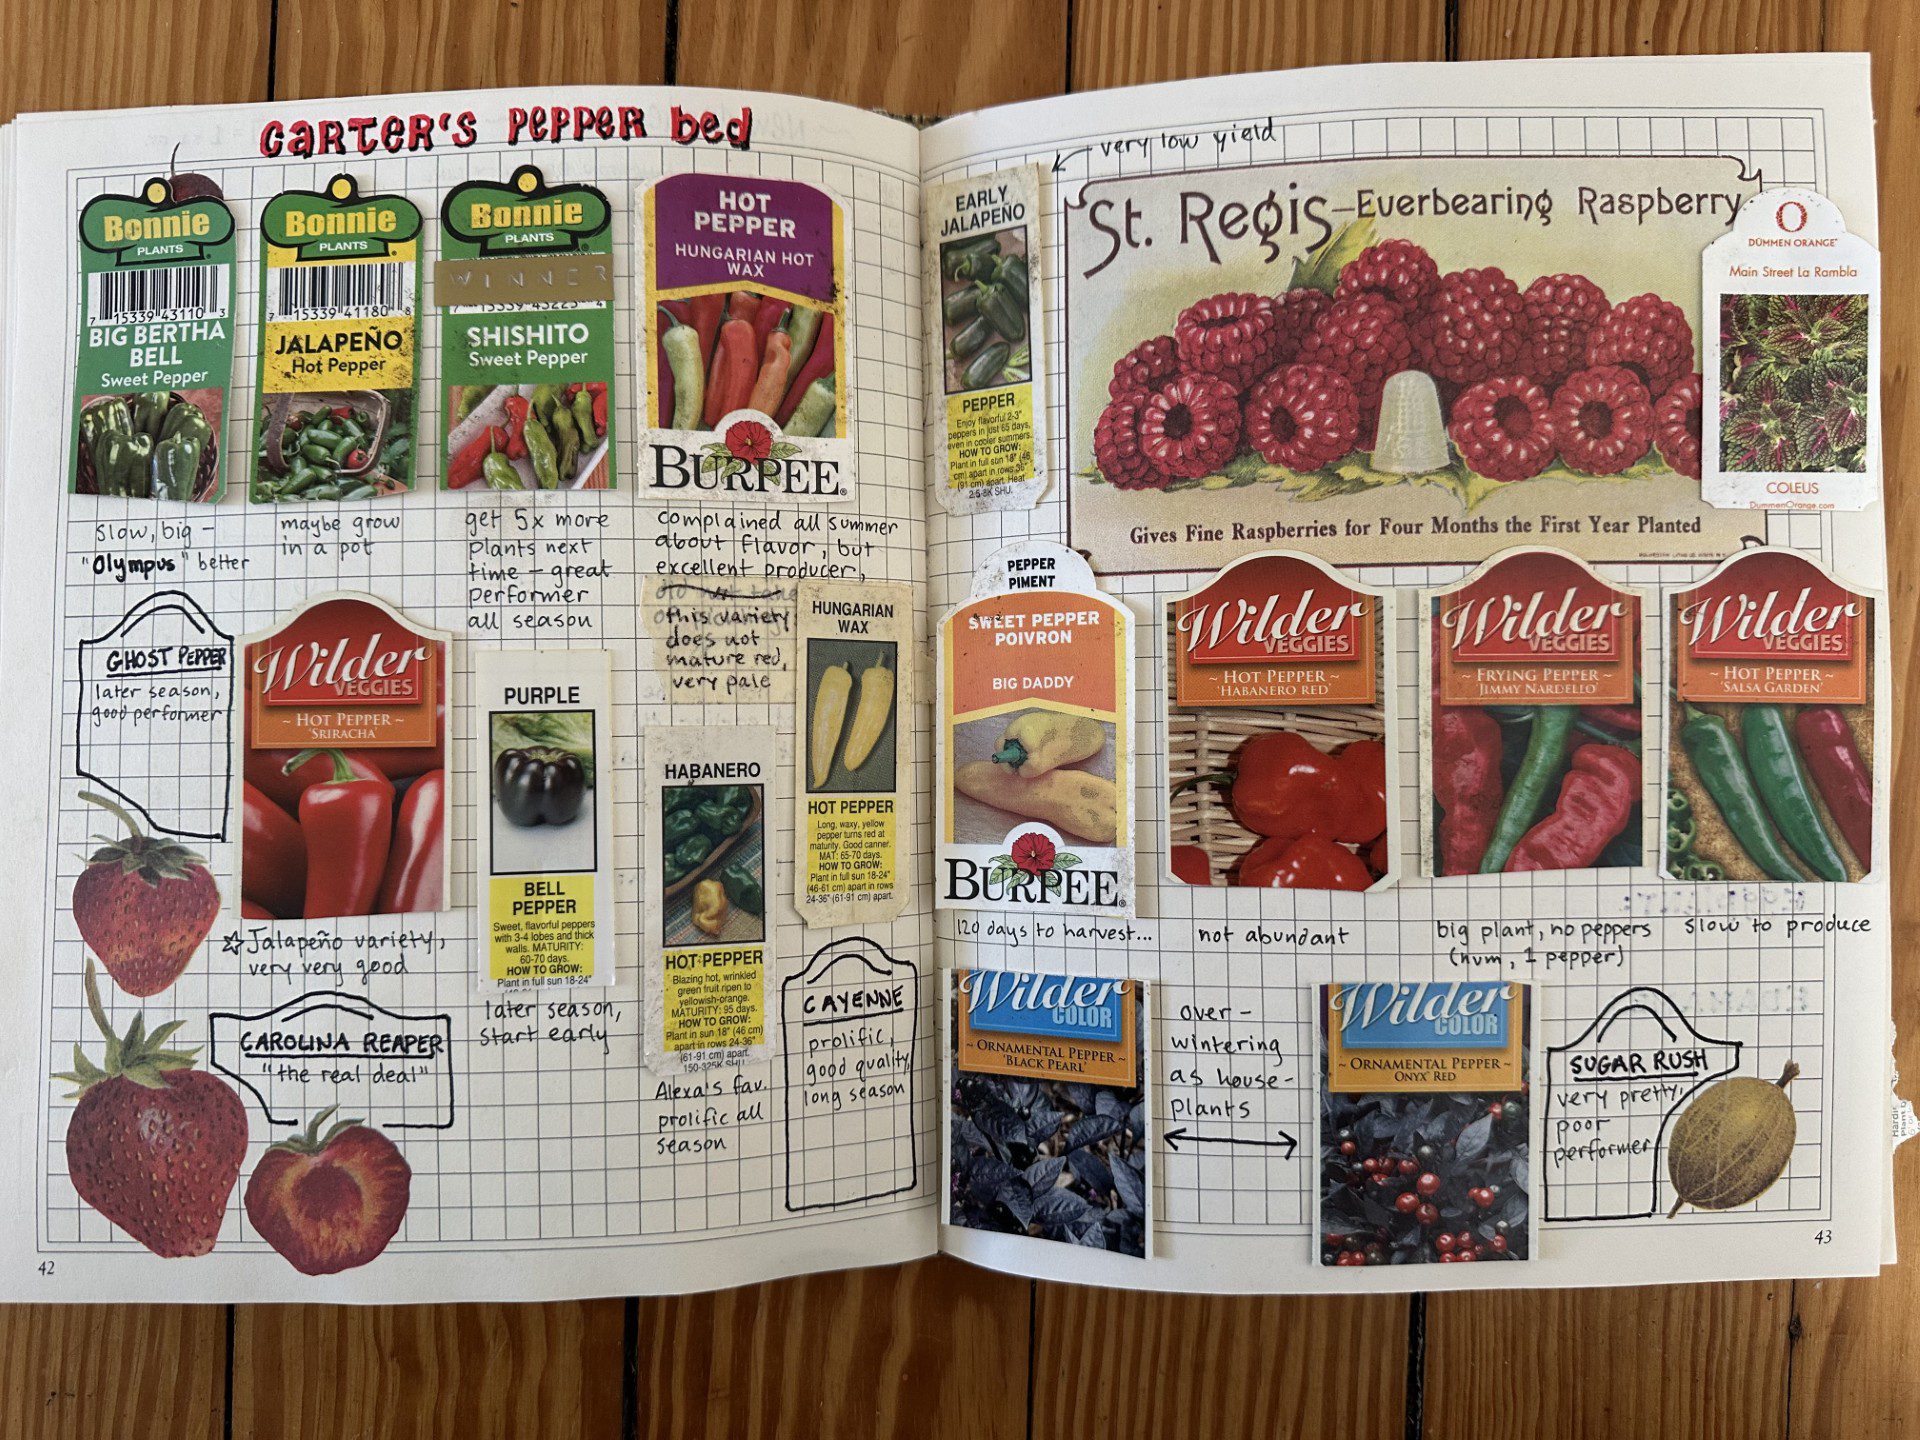 CARTER'S PEPPER bed
Bonnie
PLANTS
7 15339 43110 3
BIG BERTHA
BELL
Sweet Pepper
slow, big –
"Olympus" better
Bonnie
PLANTS
7 15339 41180 8
JALAPEÑO
Hot Pepper
maybe grow
in a pot
Bonnie
PLANTS
WINNER
7 15339 43223 4
SHISHITO
Sweet Pepper
get 5x more
plants next
time – great
performer
all season
HOT
PEPPER
HUNGARIAN HOT
WAX
BURPEE®
complained all summer
about flavor, but
excellent producer,
this variety
does not
mature red,
very pale
GHOST PEPPER
later season,
good performer
Wilder
VEGGIES
~ HOT PEPPER ~
'SRIRACHA'
☆ Jalapeño variety,
very very good
PURPLE
BELL
PEPPER
Sweet, flavorful peppers
with 3-4 lobes and thick
walls. MATURITY:
60-70 days.
HOW TO GROW:
Plant in full sun 18-24"
later season,
start early
HABANERO
HOT PEPPER
Blazing hot, wrinkled
green fruit ripen to
yellowish-orange.
MATURITY: 95 days.
HOW TO GROW:
Plant in sun 18" (46 cm)
apart in rows 24-36"
(61-91 cm) apart.
150-325K SHU
Alexa's fav.
prolific all
season
HUNGARIAN
WAX
HOT PEPPER
Long, waxy, yellow
pepper turns red at
maturity. Good canner.
MAT: 65-70 days.
HOW TO GROW:
Plant in full sun 18-24"
(46-61 cm) apart in rows
24-36" (61-91 cm) apart.
CAROLINA REAPER
"the real deal"
CAYENNE
prolific,
good quality,
long season
42
very low yield
EARLY
JALAPEÑO
PEPPER
Enjoy flavorful 2-3"
peppers in just 65 days,
even in cooler summers.
HOW TO GROW:
Plant in full sun 18" (46
cm) apart in rows 36"
(91 cm) apart. Heat
2.5-8K SHU.
St. Regis – Everbearing Raspberry
Gives Fine Raspberries for Four Months the First Year Planted
DÜMMEN ORANGE
Main Street La Rambla
COLEUS
DummenOrange.com
PEPPER
PIMENT
SWEET PEPPER
POIVRON
BIG DADDY
BURPEE®
120 days to harvest...
Wilder
VEGGIES
~ HOT PEPPER ~
'HABANERO RED'
not abundant
Wilder
VEGGIES
~ FRYING PEPPER ~
'JIMMY NARDELLO'
big plant, no peppers
(hvm, 1 pepper)
Wilder
VEGGIES
~ HOT PEPPER ~
'SALSA GARDEN'
slow to produce
Wilder
COLOR
~ ORNAMENTAL PEPPER ~
'BLACK PEARL'
over-
wintering
as house-
plants
Wilder
COLOR
~ ORNAMENTAL PEPPER ~
ONYX RED
SUGAR RUSH
very pretty,
poor
performer
43